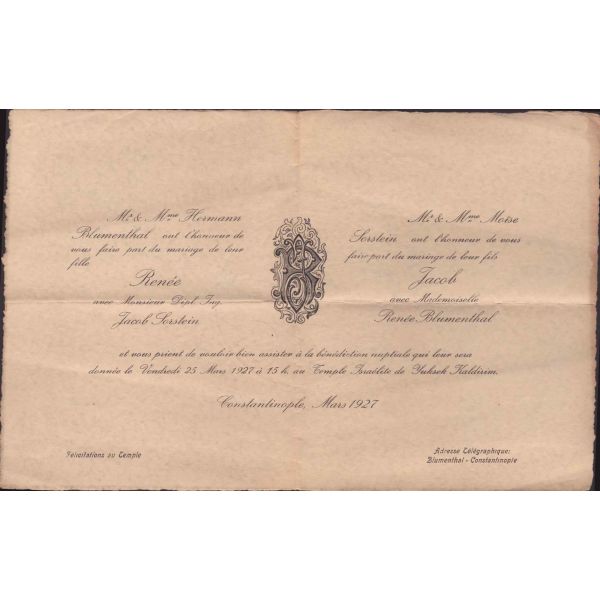 Mr. & Mme Hermann
Blumenthal ont l'honneur de
vous faire part du mariage de leur
fille
Renée
avec Monsieur Dipl. Ing.
Jacob Serstein
Mr. & Mme Moïse
Serstein ont l'honneur de vous
faire part du mariage de leur fils
Jacob
avec Mademoiselle
Renée Blumenthal
et vous prient de vouloir bien assister à la bénédiction nuptiale qui leur sera
donnée le Vendredi 25 Mars 1927 à 15 h. au Temple Israélite de Yuksek Kaldirim.
Constantinople, Mars 1927
Félicitations au Temple
Adresse Télégraphique:
Blumenthal - Constantinople